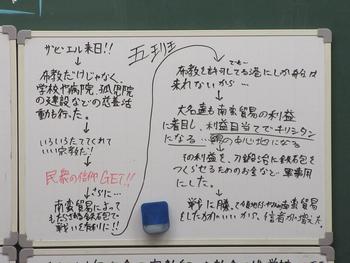 五班
ザビエル来日!!
↓
布教だけじゃなく、
学校や病院、孤児院
の建設などの慈善活
動も行った。
↓
いろいろたててくれて
いい宗教だ!
↓
民衆の信仰GET!!
↓さらに…
南蛮貿易によって
もたらされる鉄砲で
戦いを有利に!!
でも…
布教を許可してる港にしか船は
来れないから…
↓
大名達も南蛮貿易の利益
に着目し、利益目当てでキリシタン
になる…
↓
その利益を、刀鍛冶に鉄砲を
つくらせるためのお金など軍事用
にした。
↓
戦に勝
南蛮貿易
をした方がいいから、信者が増えた。